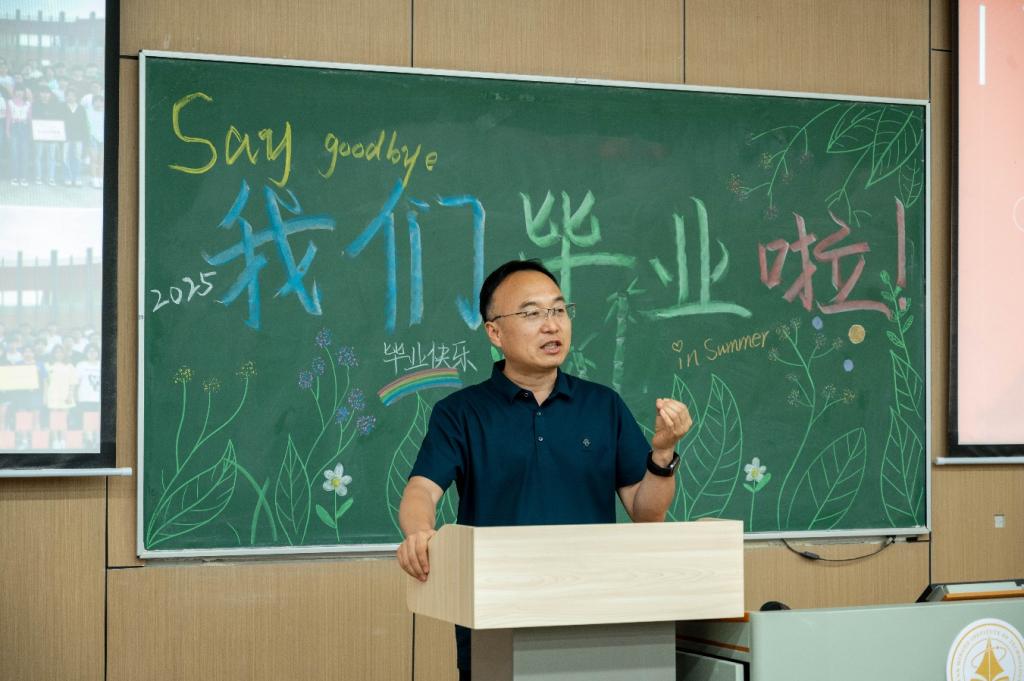 Say goodbye
我们毕业啦!
2025
毕业快乐
in Summer